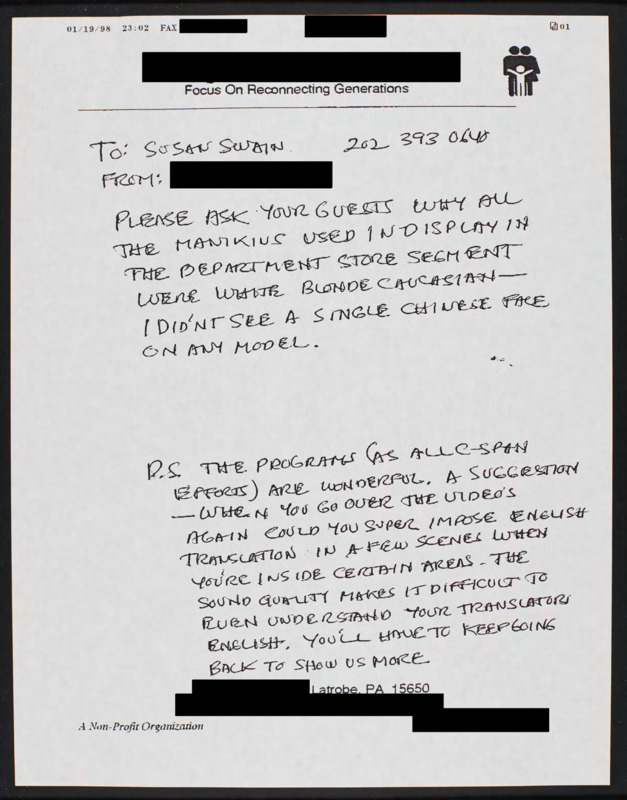 01/19/98 23:02 FAX
01
Focus On Reconnecting Generations
TO: SUSAN SWAIN. 202 393 0640
FROM:
PLEASE ASK YOUR GUESTS WHY ALL
THE MANIKIUS USED IN DISPLAY IN
THE DEPARTMENT STORE SEGMENT
WERE WHITE BLONDE CAUCASIAN—
I DID'NT SEE A SINGLE CHINESE FACE
ON ANY MODEL.
P.S. THE PROGRAMS (AS ALL C-SPAN
EFFORTS) ARE WONDERFUL. A SUGGESTION
— WHEN YOU GO OVER THE VIDEO'S
AGAIN COULD YOU SUPER IMPOSE ENGLISH
TRANSLATION IN A FEW SCENES WHEN
YOU'RE INSIDE CERTAIN AREAS. THE
SOUND QUALITY MAKES IT DIFFICULT TO
EVEN UNDERSTAND YOUR TRANSLATORS
ENGLISH. YOU'LL HAVE TO KEEP GOING
BACK TO SHOW US MORE
Latrobe, PA 15650
A Non-Profit Organization